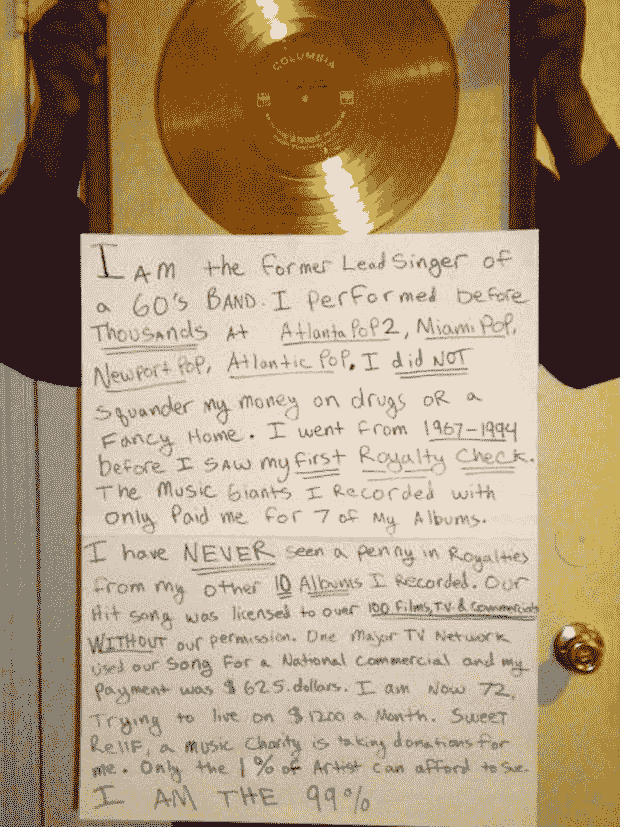 COLUMBIA
I AM the former Lead Singer of
a 60's BAND. I performed before
Thousands At Atlanta Pop 2, Miami Pop,
Newport Pop, Atlantic Pop. I did NOT
squander my money on drugs or a
Fancy Home. I went from 1967-1994
before I saw my first Royalty Check.
The Music Giants I Recorded with
only Paid me for 7 of My Albums.
I have NEVER seen a penny in Royalties
from my other 10 Albums I Recorded. Our
Hit song was licensed to over 100 Films, T.V. & Commercials
WITHOUT our permission. One Major TV Network
used our song For a National Commercial and my
payment was $ 625. dollars. I am Now 72,
Trying to live on $1200 a Month. Sweet
Relief, a music Charity is taking donations for
me. Only the 1% of Artist can afford to Sue.
I AM THE 99%